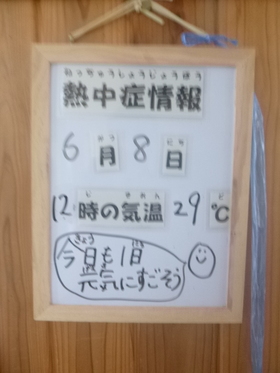 ねっちゅうしょうじょうほう
熱中症情報
がつ にち
6月8日
じ きおん ど
12時の気温29℃
きょう にち
今日も1日
げんき
元気にすごそう